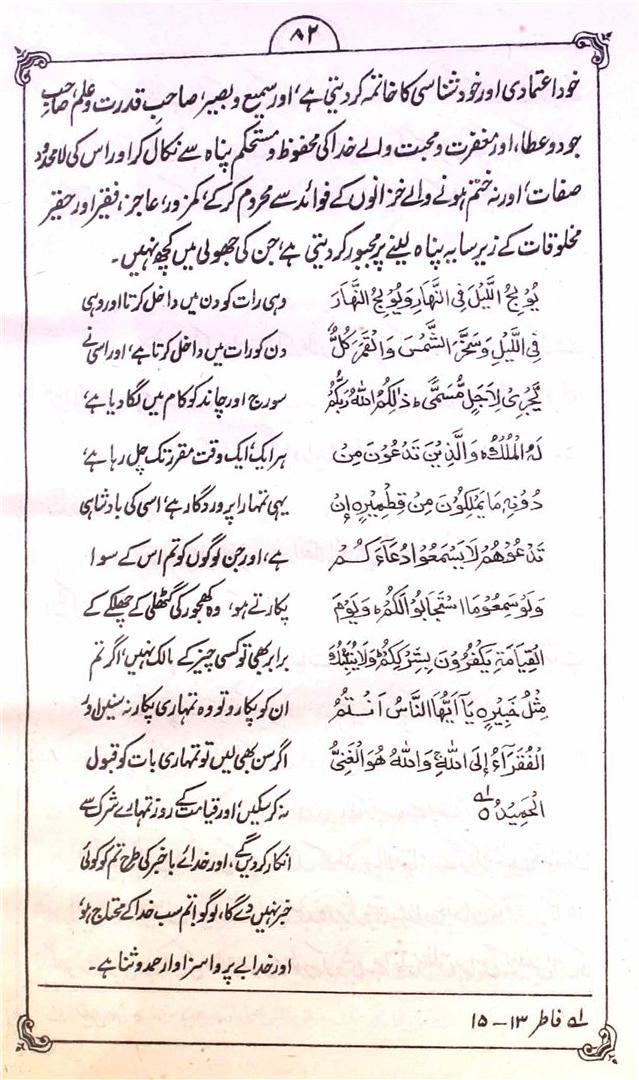 ۸۲
خود اعتمادی اور خود شناسی کا خاتمہ کر دیتی ہے، اور سمیع و بصیر، صاحبِ قدرت و علم، صاحبِ
جود و عطا، اور مغفرت و محبت والے خدا کی محفوظ و مستحکم پناہ سے نکال کر اور اس کی لامحدود
صفات، اور نہ ختم ہونے والے خزانوں کے فوائد سے محروم کر کے، کمزور، عاجز، فقیر اور حقیر
مخلوقات کے زیر سایہ پناہ لینے پر مجبور کر دیتی ہے، جن کی جھولی میں کچھ نہیں۔
يُوْلِجُ اللَّيْلَ فِى النَّهَارِ وَيُوْلِجُ النَّهَارَ
فِى اللَّيْلِ وَسَخَّرَ الشَّمْسَ وَالْقَمَرَ كُلٌّ
يَّجْرِىْ لِاَجَلٍ مُّسَمًّى ط ذٰلِكُمُ اللهُ رَبُّكُمْ
لَهُ الْمُلْكُ ه وَالَّذِيْنَ تَدْعُوْنَ مِنْ
دُوْنِهٖ مَا يَمْلِكُوْنَ مِنْ قِطْمِيْرٍ ه اِنْ
تَدْعُوْهُمْ لَا يَسْمَعُوْا دُعَآءَكُمْ
وَلَوْ سَمِعُوْا مَا اسْتَجَابُوْا لَكُمْ ه وَيَوْمَ
الْقِيَامَةِ يَكْفُرُوْنَ بِشِرْكِكُمْ ط وَلَا يُنَبِّئُكَ
مِثْلُ خَبِيْرٍ ه يَآ اَيُّهَا النَّاسُ اَنْتُمُ
الْفُقَرَآءُ اِلَى اللهِ ۚ وَاللهُ هُوَ الْغَنِىُّ
الْحَمِيْدُ ه ؎۱
وہی رات کو دن میں داخل کرتا اور وہی
دن کو رات میں داخل کرتا ہے، اور اسی نے
سورج اور چاند کو کام میں لگا دیا ہے،
ہر ایک، ایک وقت مقرر تک چل رہا ہے،
یہی تمہارا پروردگار ہے، اسی کی بادشاہی
ہے، اور جن لوگوں کو تم اس کے سوا
پکارتے ہو، وہ کھجور کی گٹھلی کے چھلکے کے
برابر بھی تو کسی چیز کے مالک نہیں، اگر تم
ان کو پکارو تو وہ تمہاری پکار نہ سنیں اور
اگر سن بھی لیں تو تمہاری بات کو قبول
نہ کر سکیں، اور قیامت کے روز تمہارے شرک سے
انکار کر دیں گے، اور خدائے باخبر کی طرح تم کو کوئی
خبر نہیں دے گا، لوگو! تم سب خدا کے محتاج ہو،
اور خدا بے پروا سزاوار حمد و ثنا ہے۔
؎۱ فاطر ۱۳–۱۵